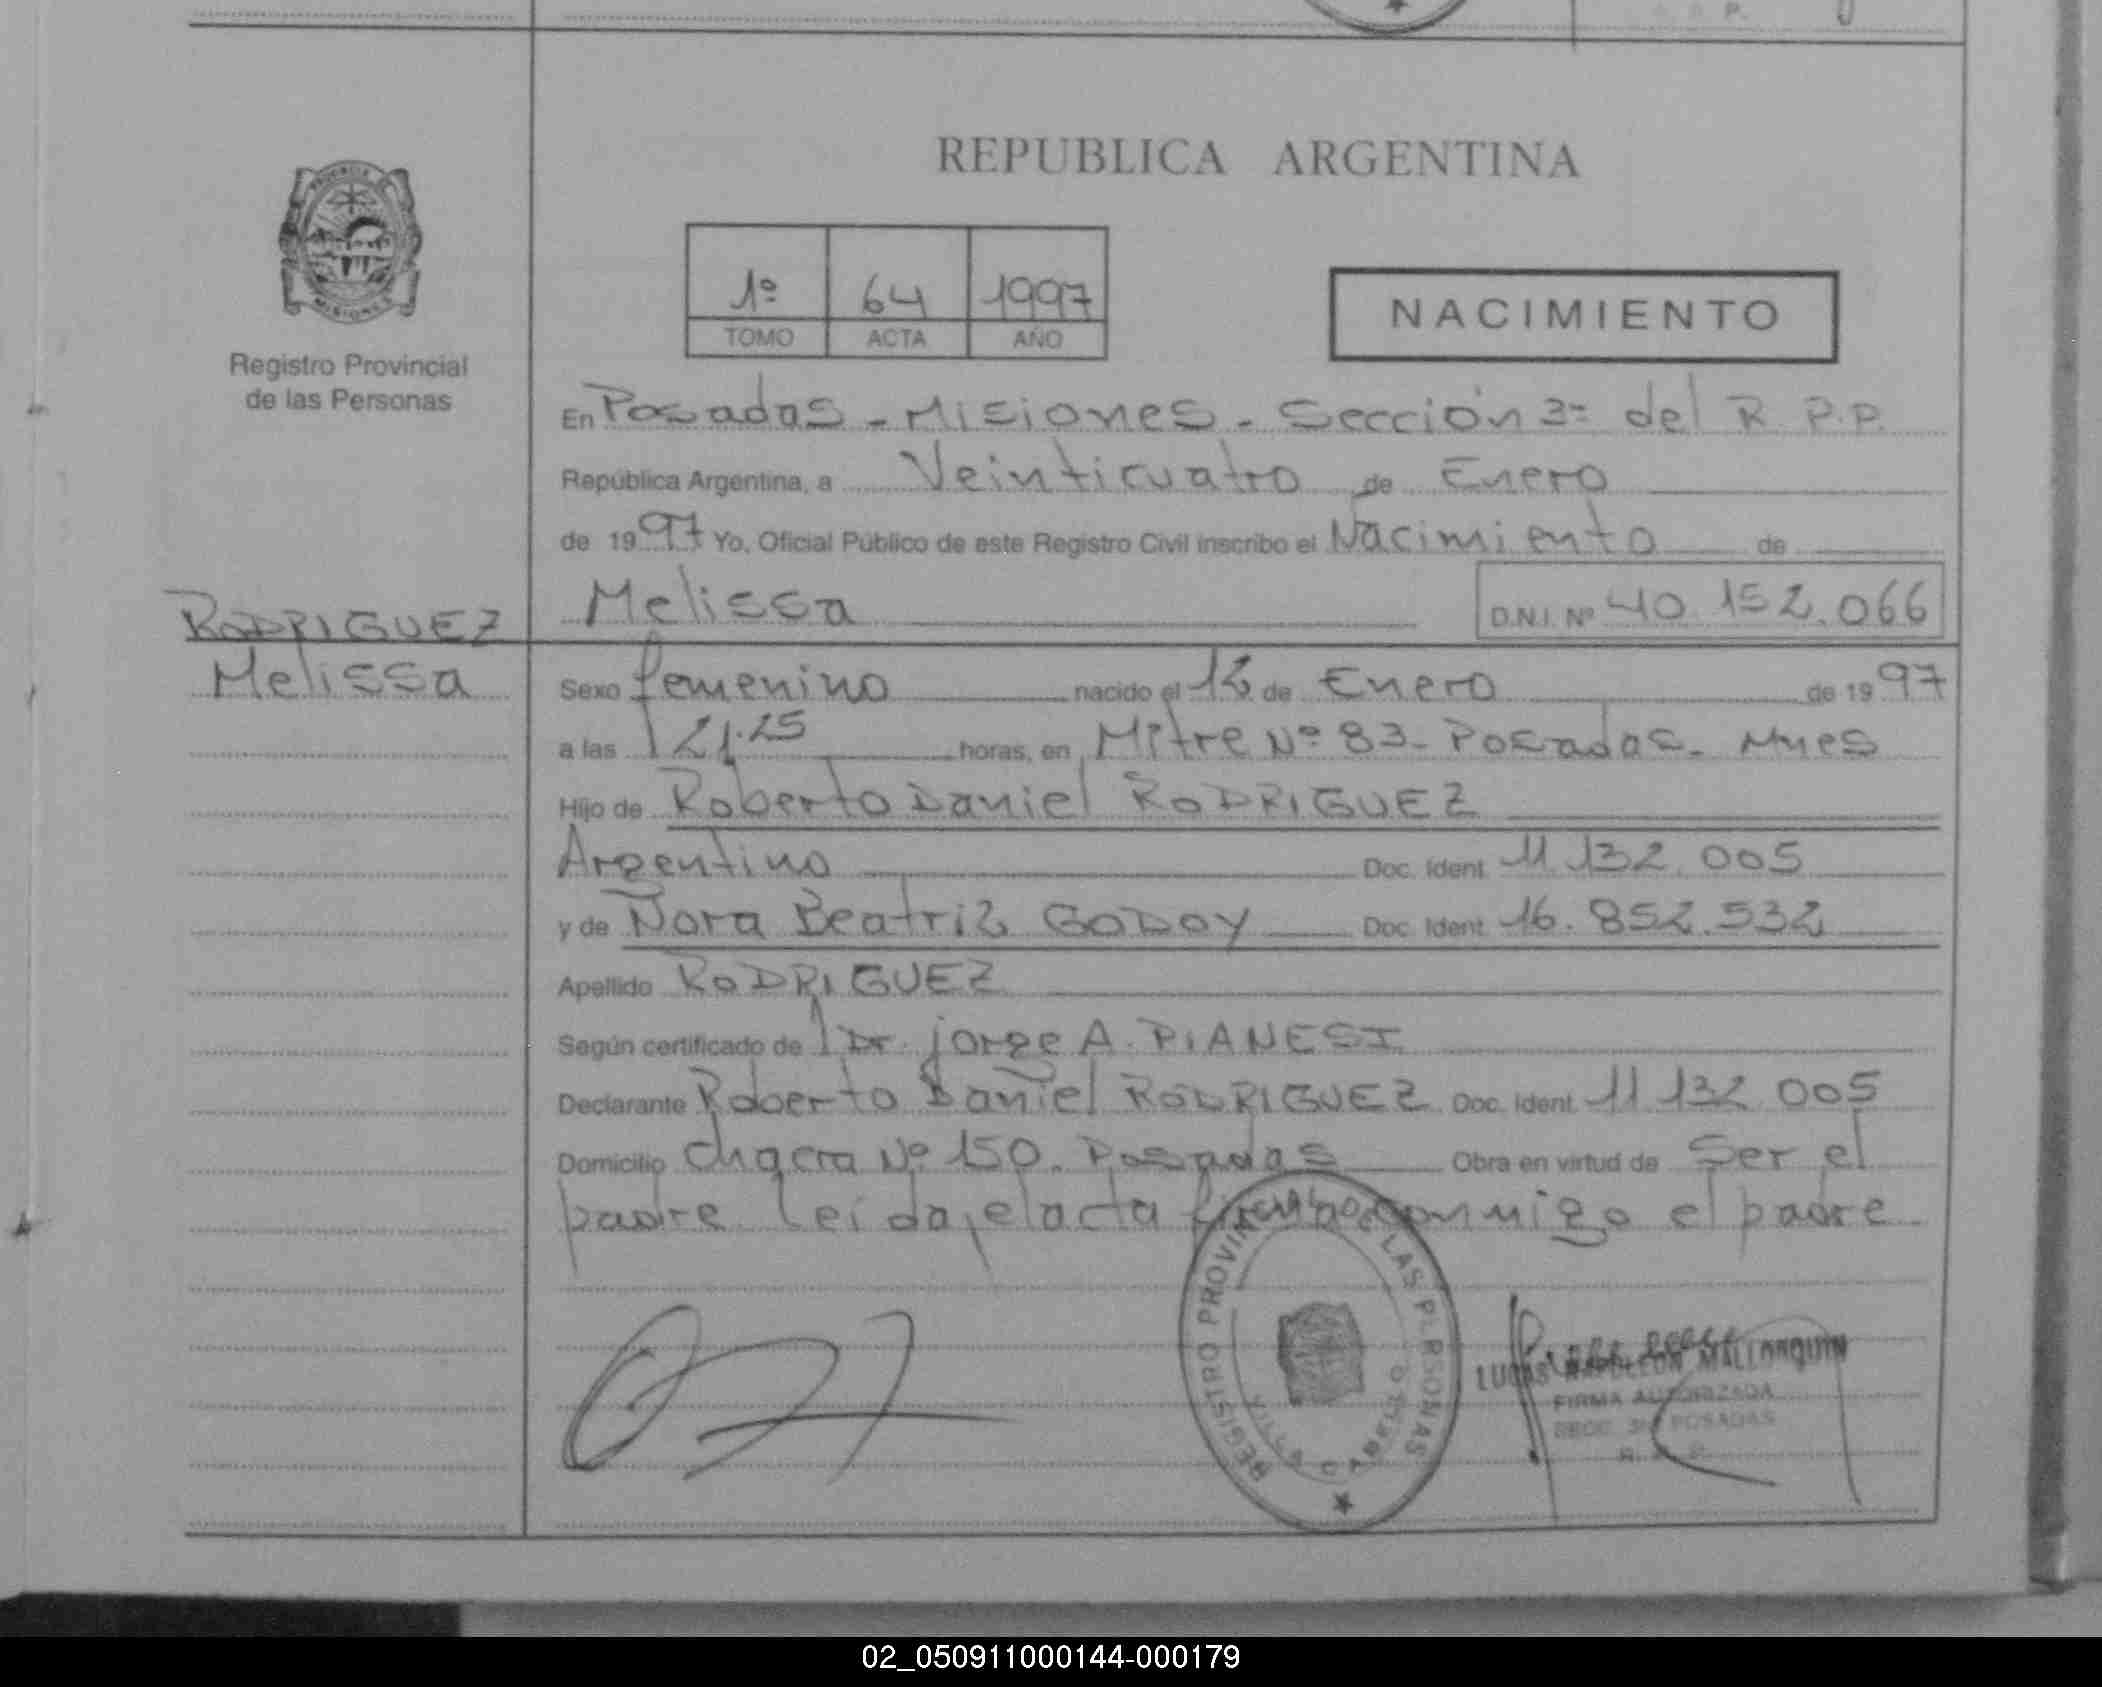 REPUBLICA ARGENTINA
PROVINCIA DE
MISIONES
Registro Provincial
de las Personas
1º 64 1997
TOMO ACTA AÑO
NACIMIENTO
En Posadas - Misiones - Sección 3ª del R.P.P.
República Argentina, a Veinticuatro de Enero
de 1997 Yo, Oficial Público de este Registro Civil inscribo el Nacimiento de
RODRIGUEZ
Melissa
Melissa D.N.I. Nº 40.152.066
Sexo femenino nacido el de Enero de 1997
a las 21.25 horas, en Mitre Nº 83 - Posadas - Mnes
Hijo de Roberto Daniel RODRIGUEZ
Argentino Doc. Ident. 11.132.005
y de Nora Beatriz GODOY Doc. Ident. 16.852.532
Apellido RODRIGUEZ
Según certificado de Dr. Jorge A. PIANESI
Declarante Roberto Daniel RODRIGUEZ Doc. Ident. 11.132.005
Domicilio Chacra Nº 150. Posadas Obra en virtud de Ser el
padre leída, el acta conmigo el padre
REGISTRO PROVINCIAL DE LAS PERSONAS
VILLA CABELLO
LUCAS NAPOLEON MALLARQUIN
FIRMA AUTORIZADA
SECC. 3ª POSADAS
02_050911000144-000179